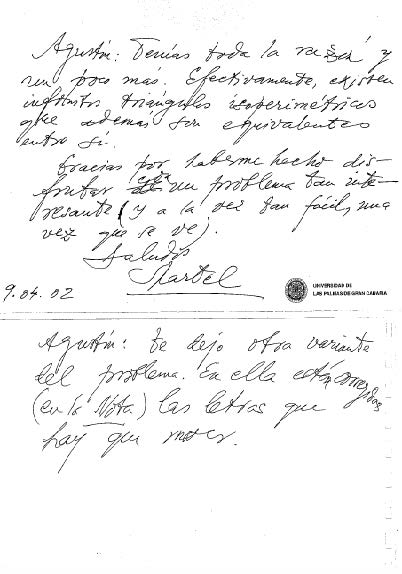 Agustín: Tenías toda la razón y
un poco más. Efectivamente, existen
infinitos triángulos isoperimétricos
que además son equivalentes
entre sí.
Gracias por haberme hecho dis-
frutar con un problema tan inte-
resante (y a la vez tan fácil, una
vez que se ve).
Saludos
9.04.02
UNIVERSIDAD DE
LAS PALMAS DE GRAN CANARIA
Agustín: te dejo otra variante
del problema. En ella están corregidas
(en la Nota) las letras que
hay que mover.